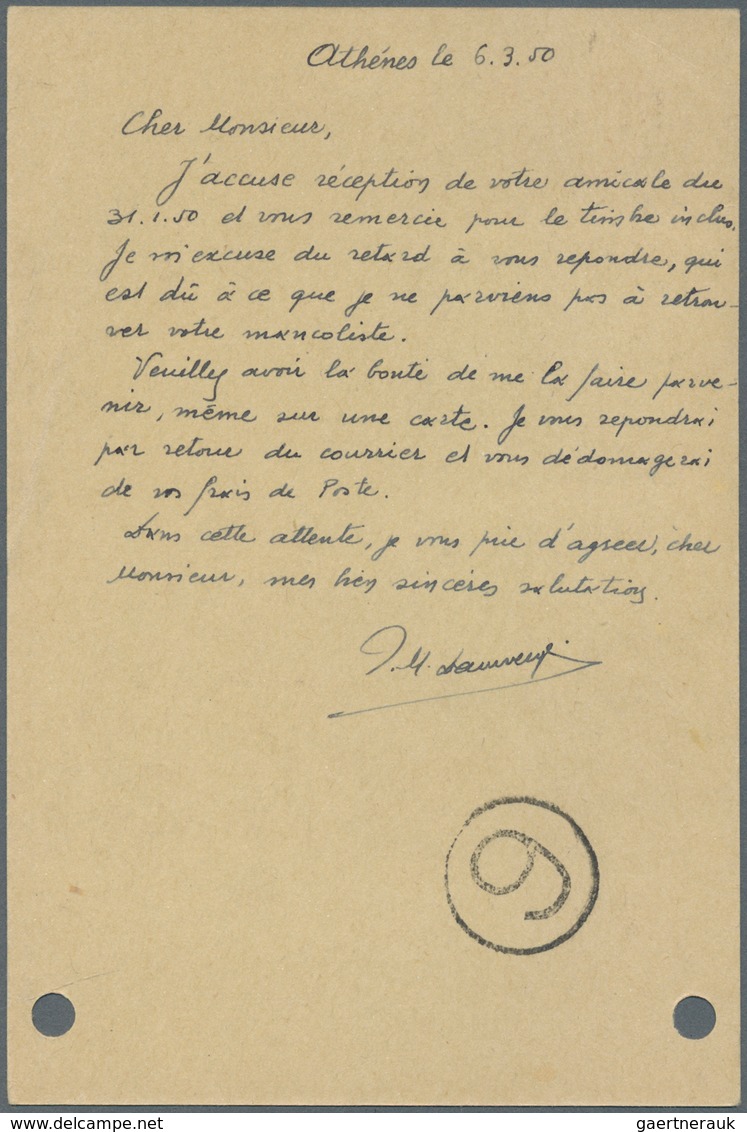 Athénes le 6.3.50
Cher Monsieur,
J'accuse réception de votre amicale du
31.1.50 et vous remercie pour le timbre inclus.
Je m'excuse du retard à vous repondre, qui
est dû à ce que je ne parviens pas à retrou-
ver votre mancoliste.
Veuillez avoir la bonté de me la faire parve-
nir, même sur une carte. Je vous repondrai
par retour du courrier et vous dédomagerai
de vos frais de Poste.
Dans cette attente, je vous prie d'agreer, cher
Monsieur, mes bien sincéres salutations.
M.
9
gaertnerauk